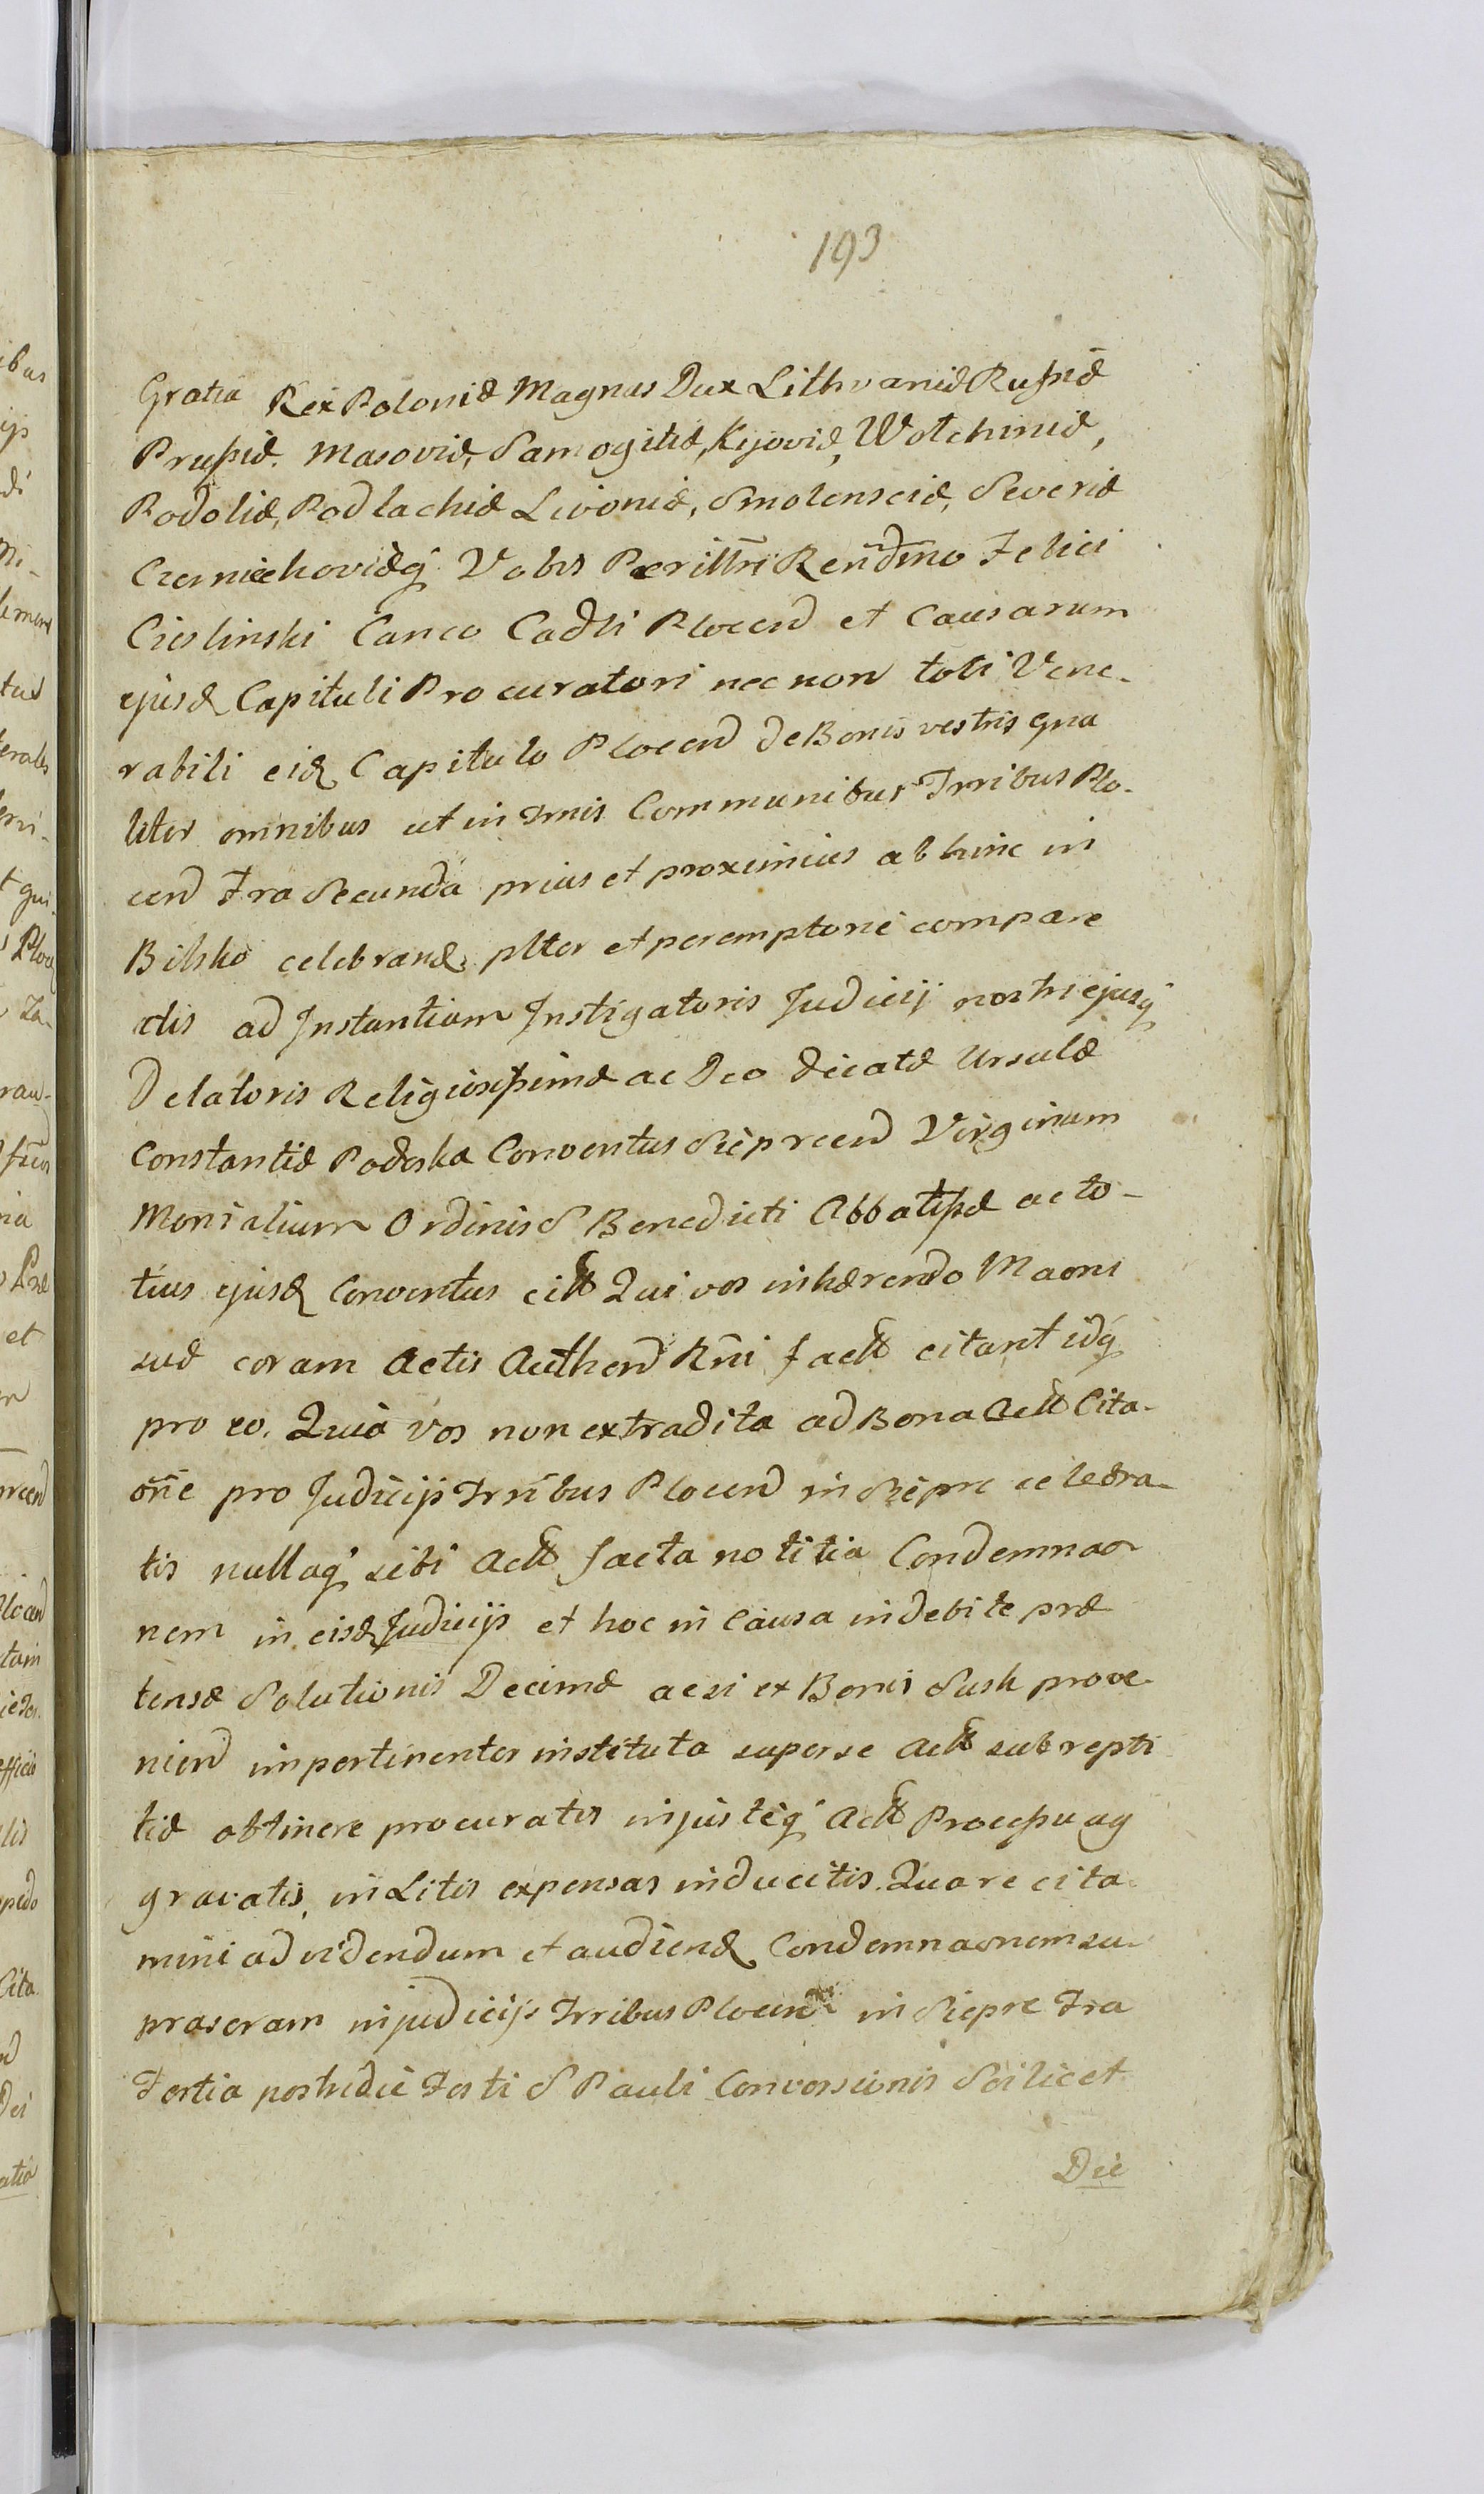 193
Gratia Rex Poloniæ Magnus Dux Lithvaniæ Rußiæ
Prußiæ. Masoviæ, Samogitiæ, Kijoviæ, Wolchiniæ,
Podoliæ, Podlachiæ Livoniæ, Smolensciæ, Severiæ
Czerniechoviæq Vobis Perillri Rendmo Felici
Cieslinski Canco Cadli Plocen et Causarum
ejusd Capituli Procuratori nec non toti Vene-
rabili eid Capitulo Plocen de Bonis vestris gna
liter omnibus ut in Trnis Communibus Trribus Plo-
cen Fra Secunda prius et proximius abhinc in
Bilsko celebrand, plter et peremptorie compare
atis ad Instantiam Instigatoris Judicij nostri ejusq
Delatoris Religiosißimæ ac Deo dicatæ Ursulæ
Constantiæ Podoska Conventus Sieprcen Virginum
Monialium Ordinis S Benedicti Abbatißæ ac to-
tius ejusd Conventus Qui vos inhærendo Maoni
suæ coram Actis Authen Rni fact citant idq
pro eo. Quia vos non extradita ad Bona Act Cita-
one pro Judicijs Trribus Plocen in Siepre celebra-
tis nullaq sibi Act facta notitia Condemnao
nem in eisd Judicijs et hoc in Causa indebite præ
tensæ Solutionis Decimæ acsi ex Bonis Susk prove-
nien impertinenter instituta super se Act subrepti
tie obtinere procuratis injusteq Act Proceßu ag
gravatis, in Litis expensas inducitis. Quare cita
mini ad videndum et audiend Condemnaonem su-
prascram in judicijs Trribus Plocen in Siepre Fra
Tertia postridie Festi S Pauli Conversionis Scilicet
Die